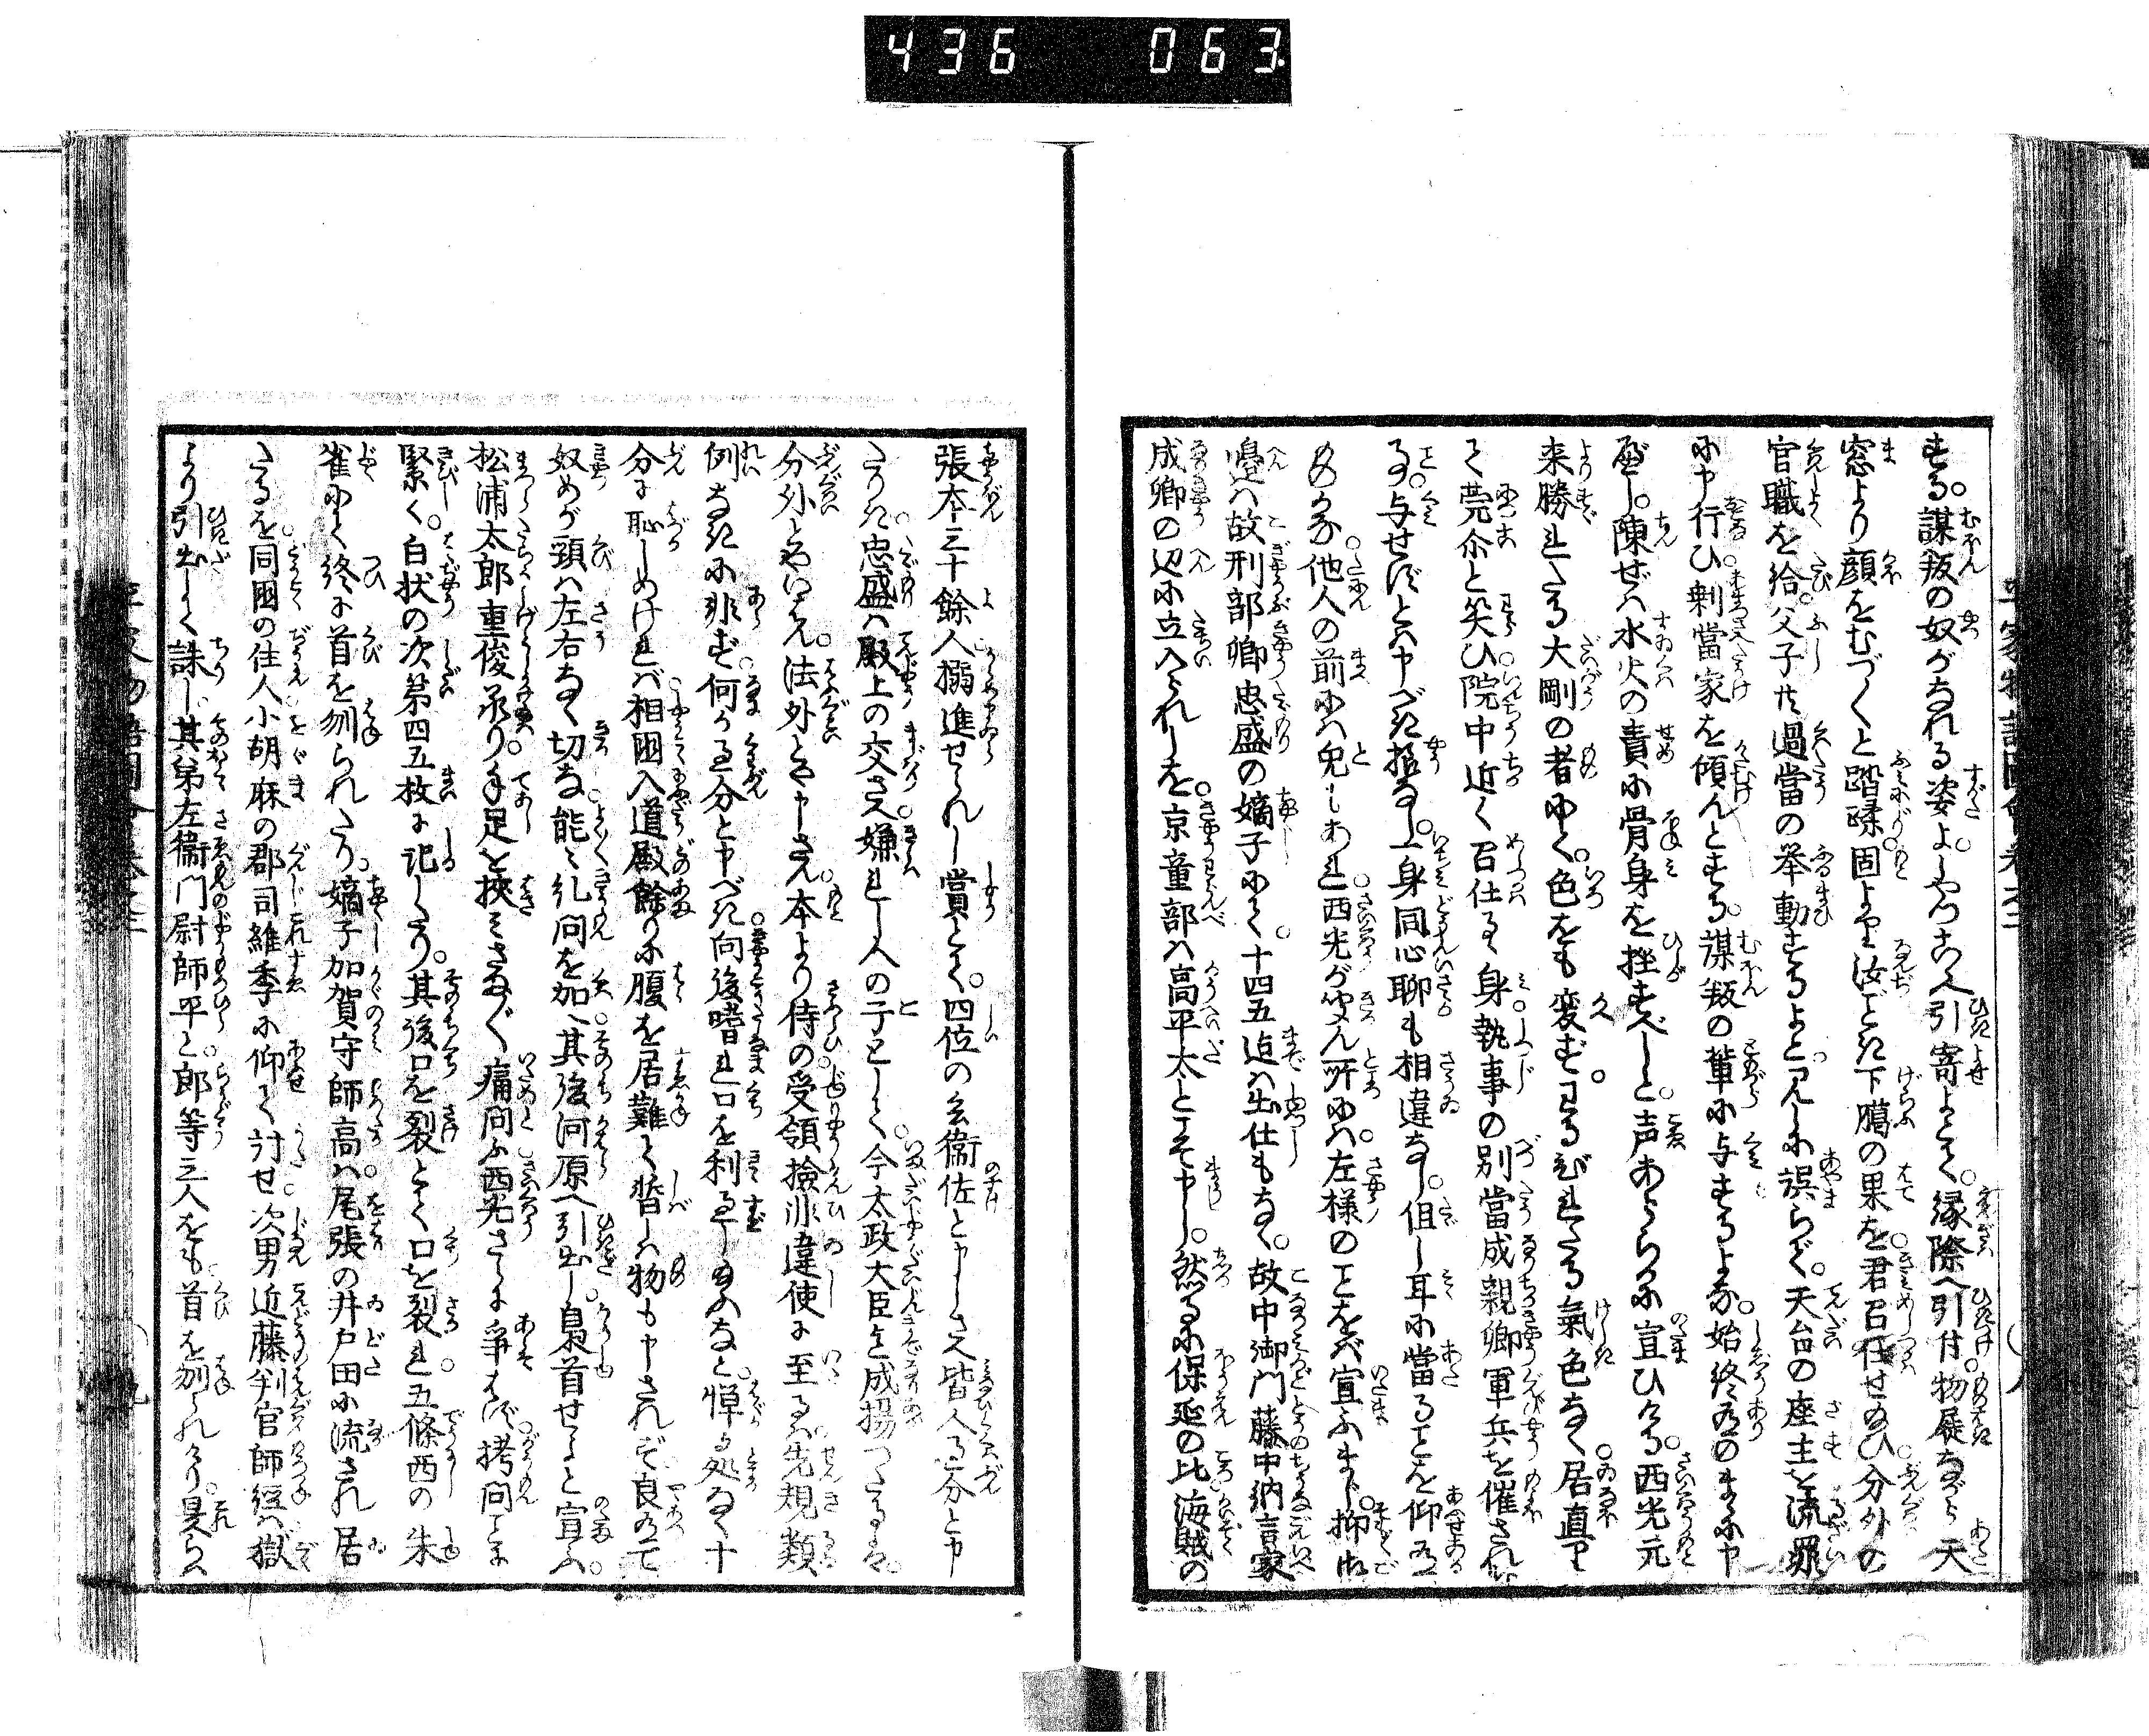 436 063
する。謀叛の奴がなれる姿よ。しやつこゝへ引寄よとて。縁際へ引付物履ながら天
窓より顔をむづ〳〵と踏蹂。固より汝ごとき下﨟の果を君召仕せ給ひ。分外の
官職を給。父子共過當の挙動するよと見しに誤らず。天台の座主を流罪
に申行ひ。剰當家を傾んとする。謀叛の輩に与するよな。始終有のまゝに申
べし。陳ぜば水火の責に骨身を挫すべしと。声あらゝかに宣ひける。西光元
来勝れたる大剛の者にて。色をも変ぜず。わるびれたる氣色なく。居直り
て莞尓と笑ひ。院中近く召仕るゝ身。執事の別當成親卿軍兵を催され
る事。与せずとは申べき樣なし。身同心聊も相違なし。但し耳に當ることを仰有
ものかな。他人の前にては兎もあれ。西光が聞ん所にては。左様のことをば宣ふまじ。抑御
邊は故刑部卿忠盛の嫡子にて。十四五迄は出仕もなく。故中御門藤中納言家
成卿の辺に立入られしを。京童部は高平太とこそ申し。然るに保延の比海賊の
張本三十餘人搦進せられし賞とて。四位の兵衛佐と申しさへ皆人過分と申
たりき。忠盛は殿上の交さへ嫌れし人の子として。今太政大臣と成揚つたるは。
分外とやいはん。法外とや申さん。本より侍の受領撿非違使に至るは。先規類
例なきに非ず。何かは過分と申べき。向後嗜れ口を利るゝものかなと。憚る処なく十
分に恥しめければ。相國入道殿餘りに腹を居難て。暫しは物も申されず。良有て
奴めが頸は左右なく切な。能々糺問を加へ。其後河原へ引出し梟首せよと宣ふ。
松浦太郎重俊承り。手足を挾みさま〴〵痛問ふ。西光さらに爭はず。拷問ことに
緊く。白状の次第四五枚に記したり。其後口を裂とて口を裂れ。五條西の朱
雀にて終に首を刎られたり。嫡子加賀守師高は。尾張の井戸田に流され居
たるを。同國の住人小胡麻の郡司維季に仰て討せ。次男近藤判官師經は獄
より引出して誅し。其弟左衞門尉師平と。郎等三人をも首を刎られけり。是らは